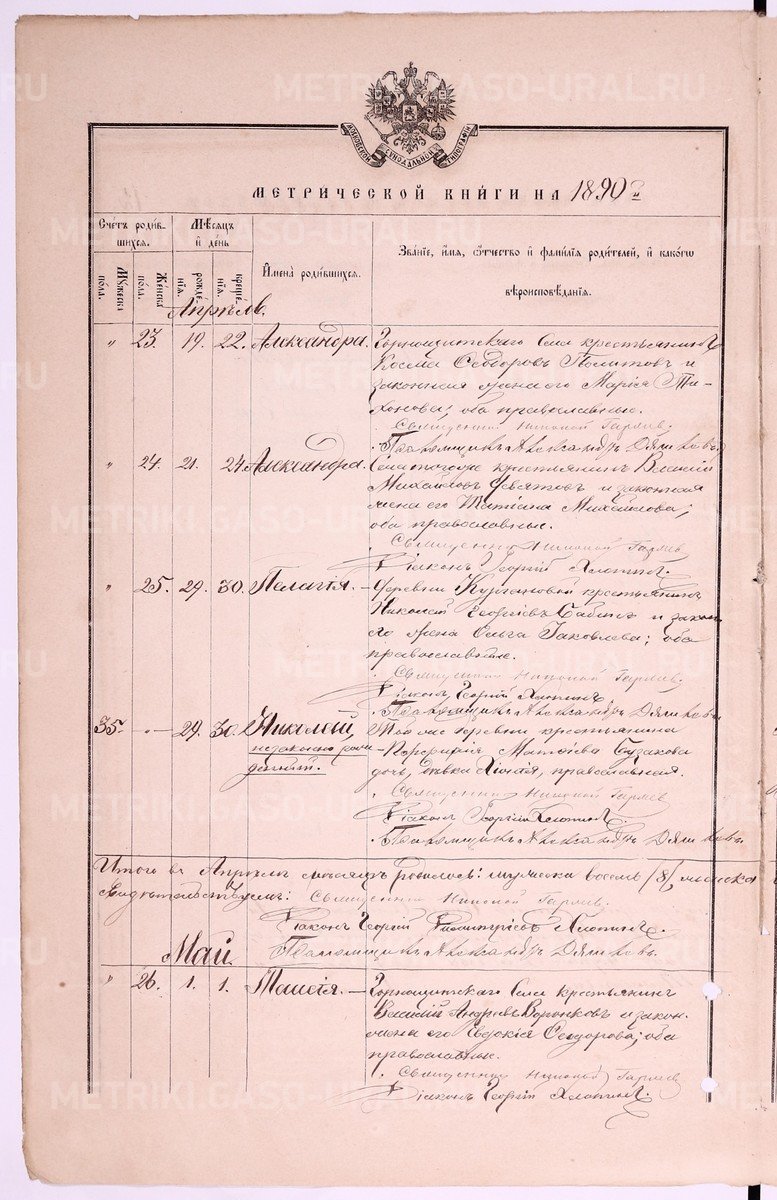 METRIKI.GASO-URAL.RU
МОСКОВСКОЙ СѴНОДАЛЬНОЙ ТИПОГРАФІИ
МЕТРИЧЕСКОЙ КНИГИ НА 1890 г.
Счетъ родившихся.
Мѣсяцъ и день
Имена родившихся.
Званіе, имя, отчество и фамилія родителей, и какого вѣроисповѣданія.
Мужеска пола.
Женска пола.
рожденія.
крещенія.
Апрѣль.
" 23. 19. 22. Александра. Горнощитскаго Села крестьянинъ
Косма Ѳеодоровъ и
законная жена его Марія Ти-
хонова; оба православные.
Священникъ Николай
Псаломщикъ Александръ
" 24. 21. 24. Александра. Села того же крестьянинъ Василій
Михайловъ Девятовъ и законная
жена его Татіана Михайлова;
оба православные.
Священникъ Николай
Діаконъ Георгій Хлопинъ.
" 25. 29. 30. Пелагія. — Деревни Кургановой крестьянинъ
Николай Георгіевъ Бабинъ и закон.
его жена Ольга Іаковлева; оба
православные.
Священникъ Николай
Діаконъ Георгій Хлопинъ
Псаломщикъ Александръ
35. " 29. 30. Николай, Той же деревни крестьянина
незаконно рож-
денный.
Порфирія Матѳіева Бузакова
дочь, дѣвка православная.
Священникъ Николай
Діаконъ Георгій Хлопинъ.
Псаломщикъ Александръ
Итого въ Апрѣлѣ мѣсяцѣ родилось: мужеска восемь /8/, женска
Свидѣтельствуемъ: Священникъ Николай
Діаконъ Георгій Димитріевъ Хлопинъ.
Псаломщикъ Александръ
Май
" 26. 1. 1. Таисія. — Горнощитскаго Села крестьянинъ
Василій Андреевъ Воронковъ и закон.
жена его Евдокія Ѳеодорова; оба
православные.
Священникъ Николай
Діаконъ Георгій Хлопинъ.